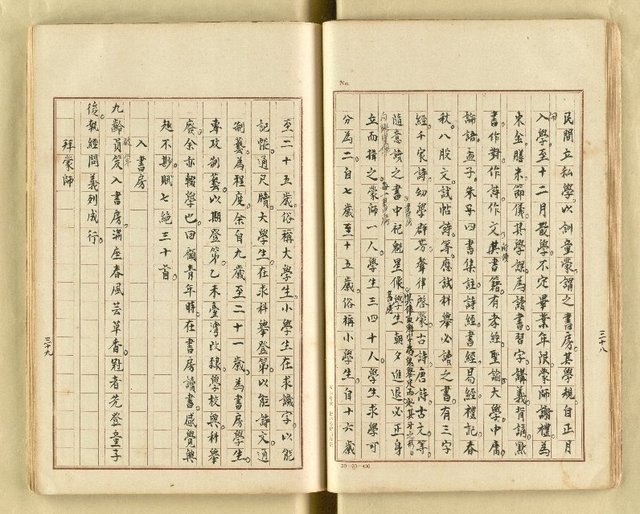 民間立私學以訓童蒙謂之書房其學規自正月
入學至十二月散學不定畢業年限蒙師謝禮為
束金膳米節儀其學課為讀書習字講義背誦默
書作對作詩作文其書籍有孝經聖諭大學中庸
論語孟子朱子四書集註詩經書經易經禮記春
秋八股文試帖詩等應試科舉必讀之書有三字
經千家詩幼學群芳聲律啓蒙古詩唐詩古文等
隨意讀之書中祀魁星像學生朝夕進退必正身
立而揖之蒙師一人學生三四十人學生求學可
分為二自七歲至十五歲俗稱小學生自十六歲
三十八
至二十五歲俗稱大學生小學生在求識字以能
記帳通尺牘大學生在求科舉登第以能詩文通
制藝為程度余自九歲至二十一歲為書房學生
專攻制藝以期登第乙未臺灣改隸學校興科舉
廢余亦輟學也回顧青年時在書房讀書感覺興
趣不尠賦七絕三十首
入書房
九齡負笈入書房滿座春風芸草香
者先登童子
後執經問義列成行
拜蒙師
三十九
No.